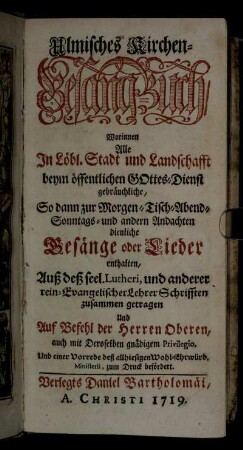 Ulmisches Kirchen-
Gesang-Buch/
Worinnen
Alle
In Löbl. Stadt und Landschafft
beym öffentlichen GOttes-Dienst
gebräuchliche/
So dann zur Morgen-Tisch-Abend-
Sonntags- und andern Andachten
dienliche
Gesänge oder Lieder
enthalten/
Auß deß seel. Lutheri, und anderer
rein-Evangelischer Lehrer Schrifften
zusammen getragen
Und
Auf Befehl der Herren Oberen/
auch mit Deroselben gnädigem Privilegio,
Und einer Vorrede deß allhiesigen Wohl-Ehrwürd.
Ministerii, zum Druck befördert.
Verlegts Daniel Bartholomäi/
A. CHRISTI 1719.